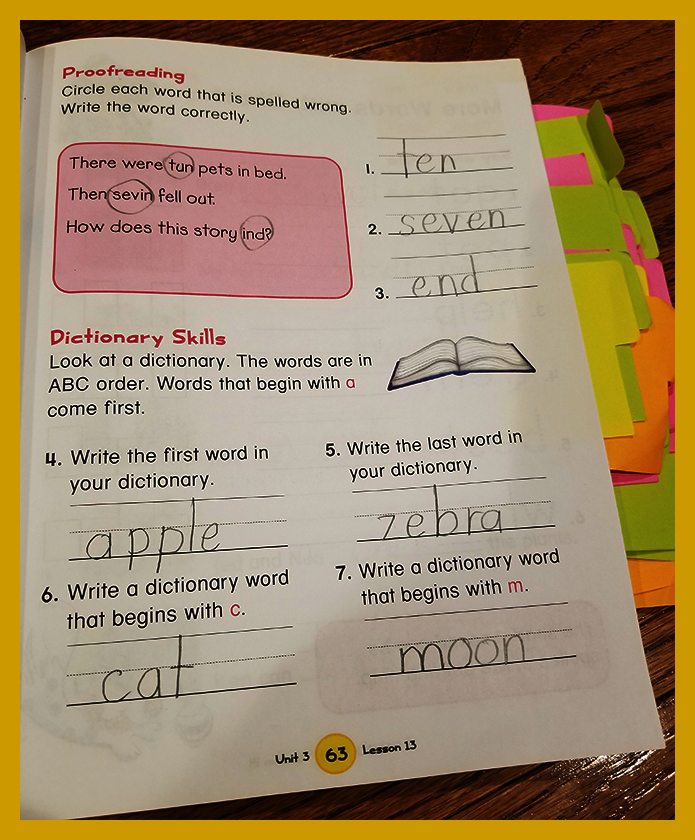 Proofreading
Circle each word that is spelled wrong.
Write the word correctly.
There were tun pets in bed.
Then sevin fell out.
How does this story ind?
1. ten
2. seven
3. end
Dictionary Skills
Look at a dictionary. The words are in
ABC order. Words that begin with a
come first.
4. Write the first word in
your dictionary.
apple
5. Write the last word in
your dictionary.
zebra
6. Write a dictionary word
that begins with c.
cat
7. Write a dictionary word
that begins with m.
moon
Unit 3 63 Lesson 13